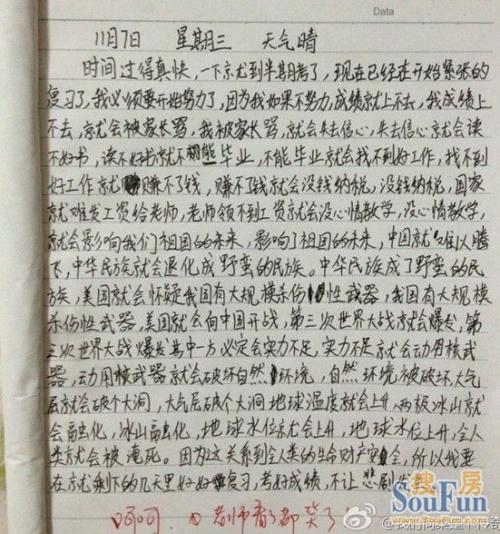 Data
11月7日 星期三 天气晴
时间过得真快，一下就到半期考了，现在已经在开始紧张的
复习了，我必须要开始努力了，因为我如果不努力，成绩就上不去，我成绩上
不去，就会被家长骂，我被家长骂，就会失去信心，失去信心就会读
不好书，读不好书就不能毕业，不能毕业就会找不到好工作，找不到
好工作就赚不了钱，赚不了钱就会没钱纳税，没钱纳税，国家
就难发工资给老师，老师领不到工资就会没心情教学，没心情教学，
就会影响我们祖国的未来，影响了祖国的未来，中国就难以腾
飞，中华民族就会退化成野蛮的民族。中华民族成了野蛮的民
族，美国就会怀疑我国有大规模杀伤性武器，我国有大规模
杀伤性武器，美国就会向中国开战，第三次世界大战就会爆发，第
三次世界大战爆发其中一方必定会实力不足，实力不足就会动用核武
器，动用核武器就会破坏自然环境，自然环境被破坏，大气
层就会破个大洞，大气层破个大洞地球温度就会上升，两极冰山就
会融化，冰山融化，地球水位就会上升，地球水位上升，全人
类就会被淹死。因为这关系到全人类的生命财产安全，所以我要
在就剩下的几天里好好复习，考好成绩，不让悲剧发
呵呵，老师看了都笑了！
搜房
SouFun